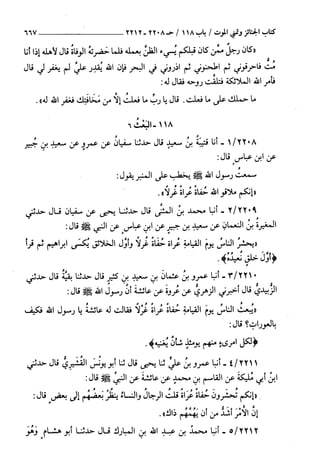 كتاب الجنائز وتمني الموت / باب ١١٨ / حـ ٢٢٠٨ - ٢٢١٢ ــــــــــ ٦٦٧
«كان رجلٌ ممَّن كان قبلكم يُسيءُ الظنَّ بعمله فلما حضرتهُ الوفاةُ قال لأهله إذا أنا
مُتُّ فاحرقوني ثم اطحنوني ثم اذروني في البحر فإن اللهَ يُقدر عليَّ لم يغفر لي قال
فأمر اللهُ الملائكة فتلقَّت روحه فقال له:
ما حملك على ما فعلت. قال يا ربِّ ما فعلتُ إلَّا من مَخَافَتِك فغفر الله له».
١١٨ - البَعْثُ ٦
١/٢٢٠٨ - أنا قتيبةُ بنُ سعيدٍ قال حدثنا سفيانُ عن عمرٍو عن سعيدِ بنِ جُبيرٍ
عن ابنِ عباسٍ قال:
سمعتُ رسول الله ﷺ يخطب على المنبر يقول:
«إنكم ملاقو الله حُفاةً عُراةً غُرلاً».
٢/٢٢٠٩ - أنبا محمد بنُ المثنَّى قال حدثنا يحيى عن سفيان قـال حدثني
المغيرةُ بنُ النعمانِ عن سعيدِ بن جبيرٍ عن ابنِ عباسٍ عن النبيِّ ﷺ قال:
«يحشرُ الناسُ يومَ القيامةِ عراةً حُفاةً غُرلاً وأوَّلُ الخلائقِ يُكسَى ابراهيمُ ثم قرأ
﴿أوَّلَ خلقٍ نُعيدُهُ﴾.
٣/٢٢١٠ - أنبا عمرو بنُ عثمانَ بنِ سعيدِ بنِ كثيرٍ قال حدثنا بقيَّةُ قال حدثني
الزُّبيديُّ قال أخبرني الزهريُّ عن عُروةَ عن عائشةَ أنَّ رسول الله ﷺ قال:
«يُبعثُ الناسُ يومَ القيامةِ حُفاةً عُراةً غُرْلاً فقالت له عائشةُ يا رسول الله فكيف
بالعوراتِ؟ قال:
﴿لكلِّ امرىءٍ منهم يومئذٍ شأنٌ يُغنيهِ﴾.
٤/٢٢١١ - أنبا عمرو بنُ عليٍّ ثنا يحيى قال ثنا أبو يونُسَ القُشيريُّ قال حدثني
ابنُ أبي مُليكةَ عن القاسمِ بنِ محمدٍ عن عائشةَ عن النبيِّ ﷺ قال:
«إنكم تُحشرون حُفاةً عُراةً قلتُ الرجالُ والنساءُ ينظُرُ بَعضُهُم إلى بعضٍ قال:
إنَّ الأَمْرَ أشدُّ من أن يَهُمَّهُم ذاك».
٥/٢٢١٢ - أنبا محمدُ بن عبدِ الله بنِ المبارك قـال حدثنـا أبو هشـامٍ وَهُوَ